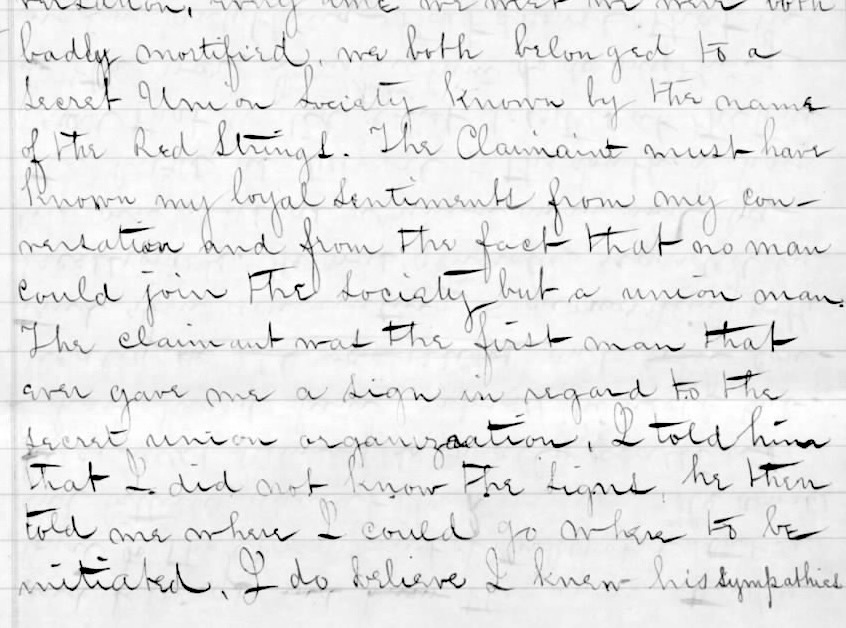 badly mortified, we both belonged to a
Secret Union Society known by the name
of the Red Strings. The Claimaint must have
known my loyal sentiments from my con-
versation and from the fact that no man
could join the Society but a union man.
The claimant was the first man that
ever gave me a sign in regard to the
secret union organizaation, I told him
that I did not know the signs, he then
told me where I could go where to be
initiated, I do believe I knew his sympathies